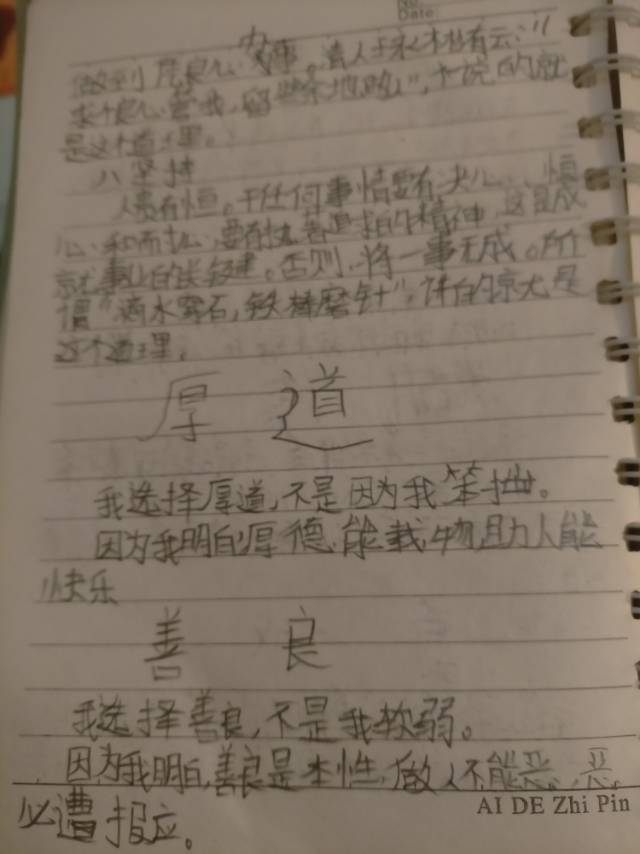 No:
Date:
做到凭良心办事。有云：“
良心，留些余地”，说的就
是这个道理。
八 坚持
人贵有恒。干任何事情要有决心、恒
心和而，要有的精神，这是成
就事业的关键。否则，将一事无成。所
谓“滴水穿石，铁棒磨针”，讲的就是
这个道理。
厚 道
我选择厚道，不是因为我笨拙。
因为我明白，厚德能载物，助人能
快乐
善 良
我选择善良，不是我软弱。
因为我明白，善良是本性，做人不能恶，恶
必遭报应。
AI DE Zhi Pin